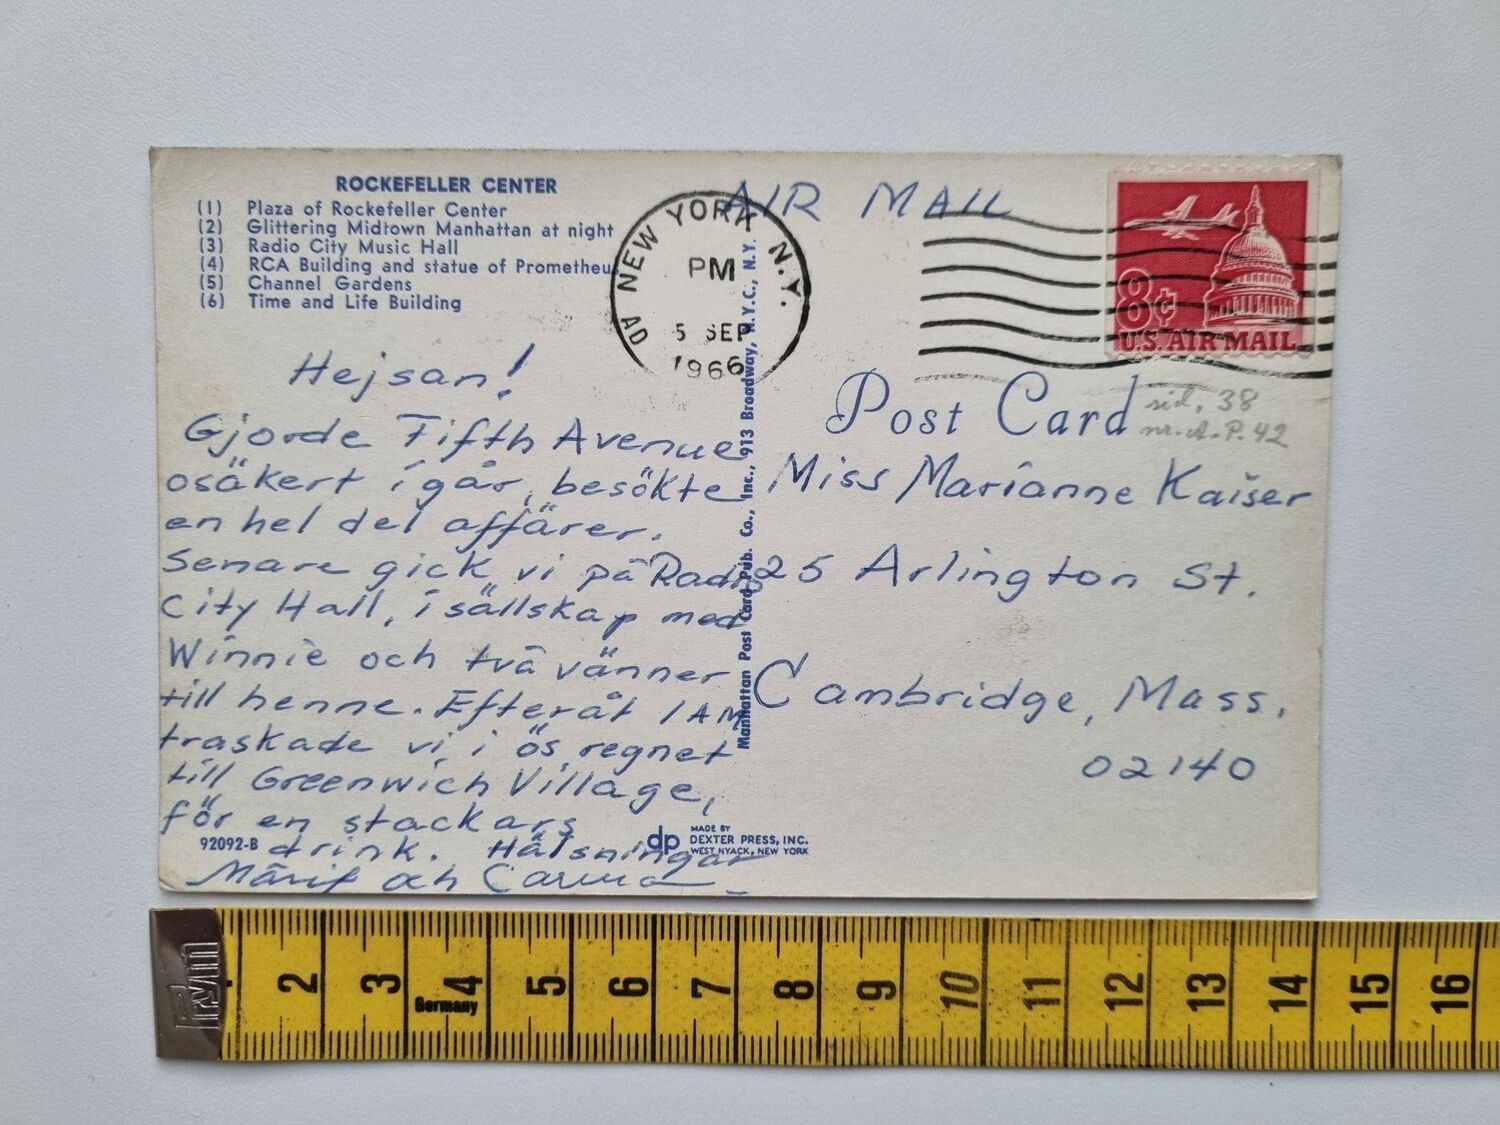 ROCKEFELLER CENTER
(1) Plaza of Rockefeller Center
(2) Glittering Midtown Manhattan at night
(3) Radio City Music Hall
(4) RCA Building and statue of Prometheus
(5) Channel Gardens
(6) Time and Life Building
Hejsan!
Gjorde Fifth Avenue
osäkert i går, besökte
en hel del affärer.
Senare gick vi på Radio
City Hall, i sällskap med
Winnie och två vänner
till henne. Efteråt 1 AM
traskade vi i ös regnet
till Greenwich Village,
för en stackars
drink. Hälsningar
och
92092-B
dp
MADE BY
DEXTER PRESS, INC.
WEST NYACK, NEW YORK
Manhattan Post Card Pub. Co., Inc., 913 Broadway, N.Y.C., N.Y.
NEW YORK N.Y.
PM
5 SEP
1966
AIR MAIL
8¢
U.S. AIR MAIL
Post Card
sid. 38
nr. A.P. 42
Miss Marianne Kaiser
25 Arlington St.
Cambridge, Mass.
02140
Prym
2 3 4 5 6 7 8 9 10 11 12 13 14 15 16
Germany